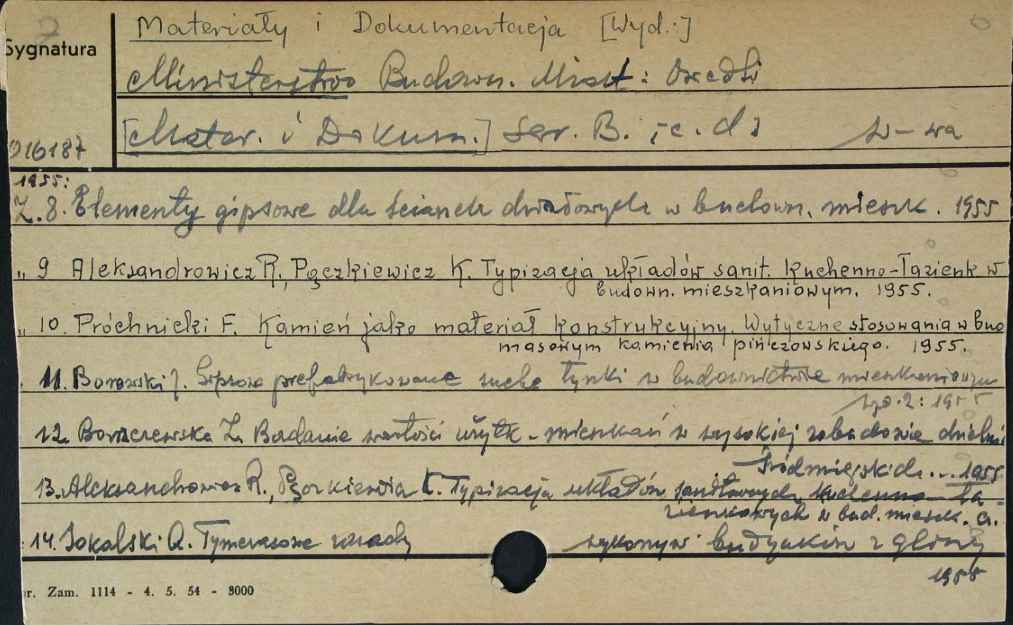 Materiały i Dokumentacja [Wyd.:]
Sygnatura
Ministerstwo Budown. Miast i Osiedli
[Mater. i Dokum.] Ser. B. c. d. W-wa
016187
1955:
Z. 8. Elementy gipsowe dla ścianek działowych w budown. mieszk. 1955
„ 9 Aleksandrowicz R., Pączkiewicz K. Typizacja układów sanit. kuchenno-łazienk w
budown. mieszkaniowym. 1955.
„ 10. Próchnicki F. Kamień jako materiał konstrukcyjny. Wytyczne stosowania w bud
masowym kamienia pińczowskiego. 1955.
11. Borowski J. Gipsowe prefabrykowane suche tynki w budownictwie mieszkaniowym
wyd. 2: 1955
12. Z. Badanie wartości użytk. mieszkań w wysokiej zabudowie dzielnic
śródmiejskich... 1955
13. Aleksandrowicz R., Pączkiewicz K. Typizacja układów kuchenno-ła-
zienkowych w bud. mieszk.
14. Sokalski Tymczasowe zasady wykonyw. budynków z gliny
1955
r. Zam. 1114 - 4. 5. 54 - 3000